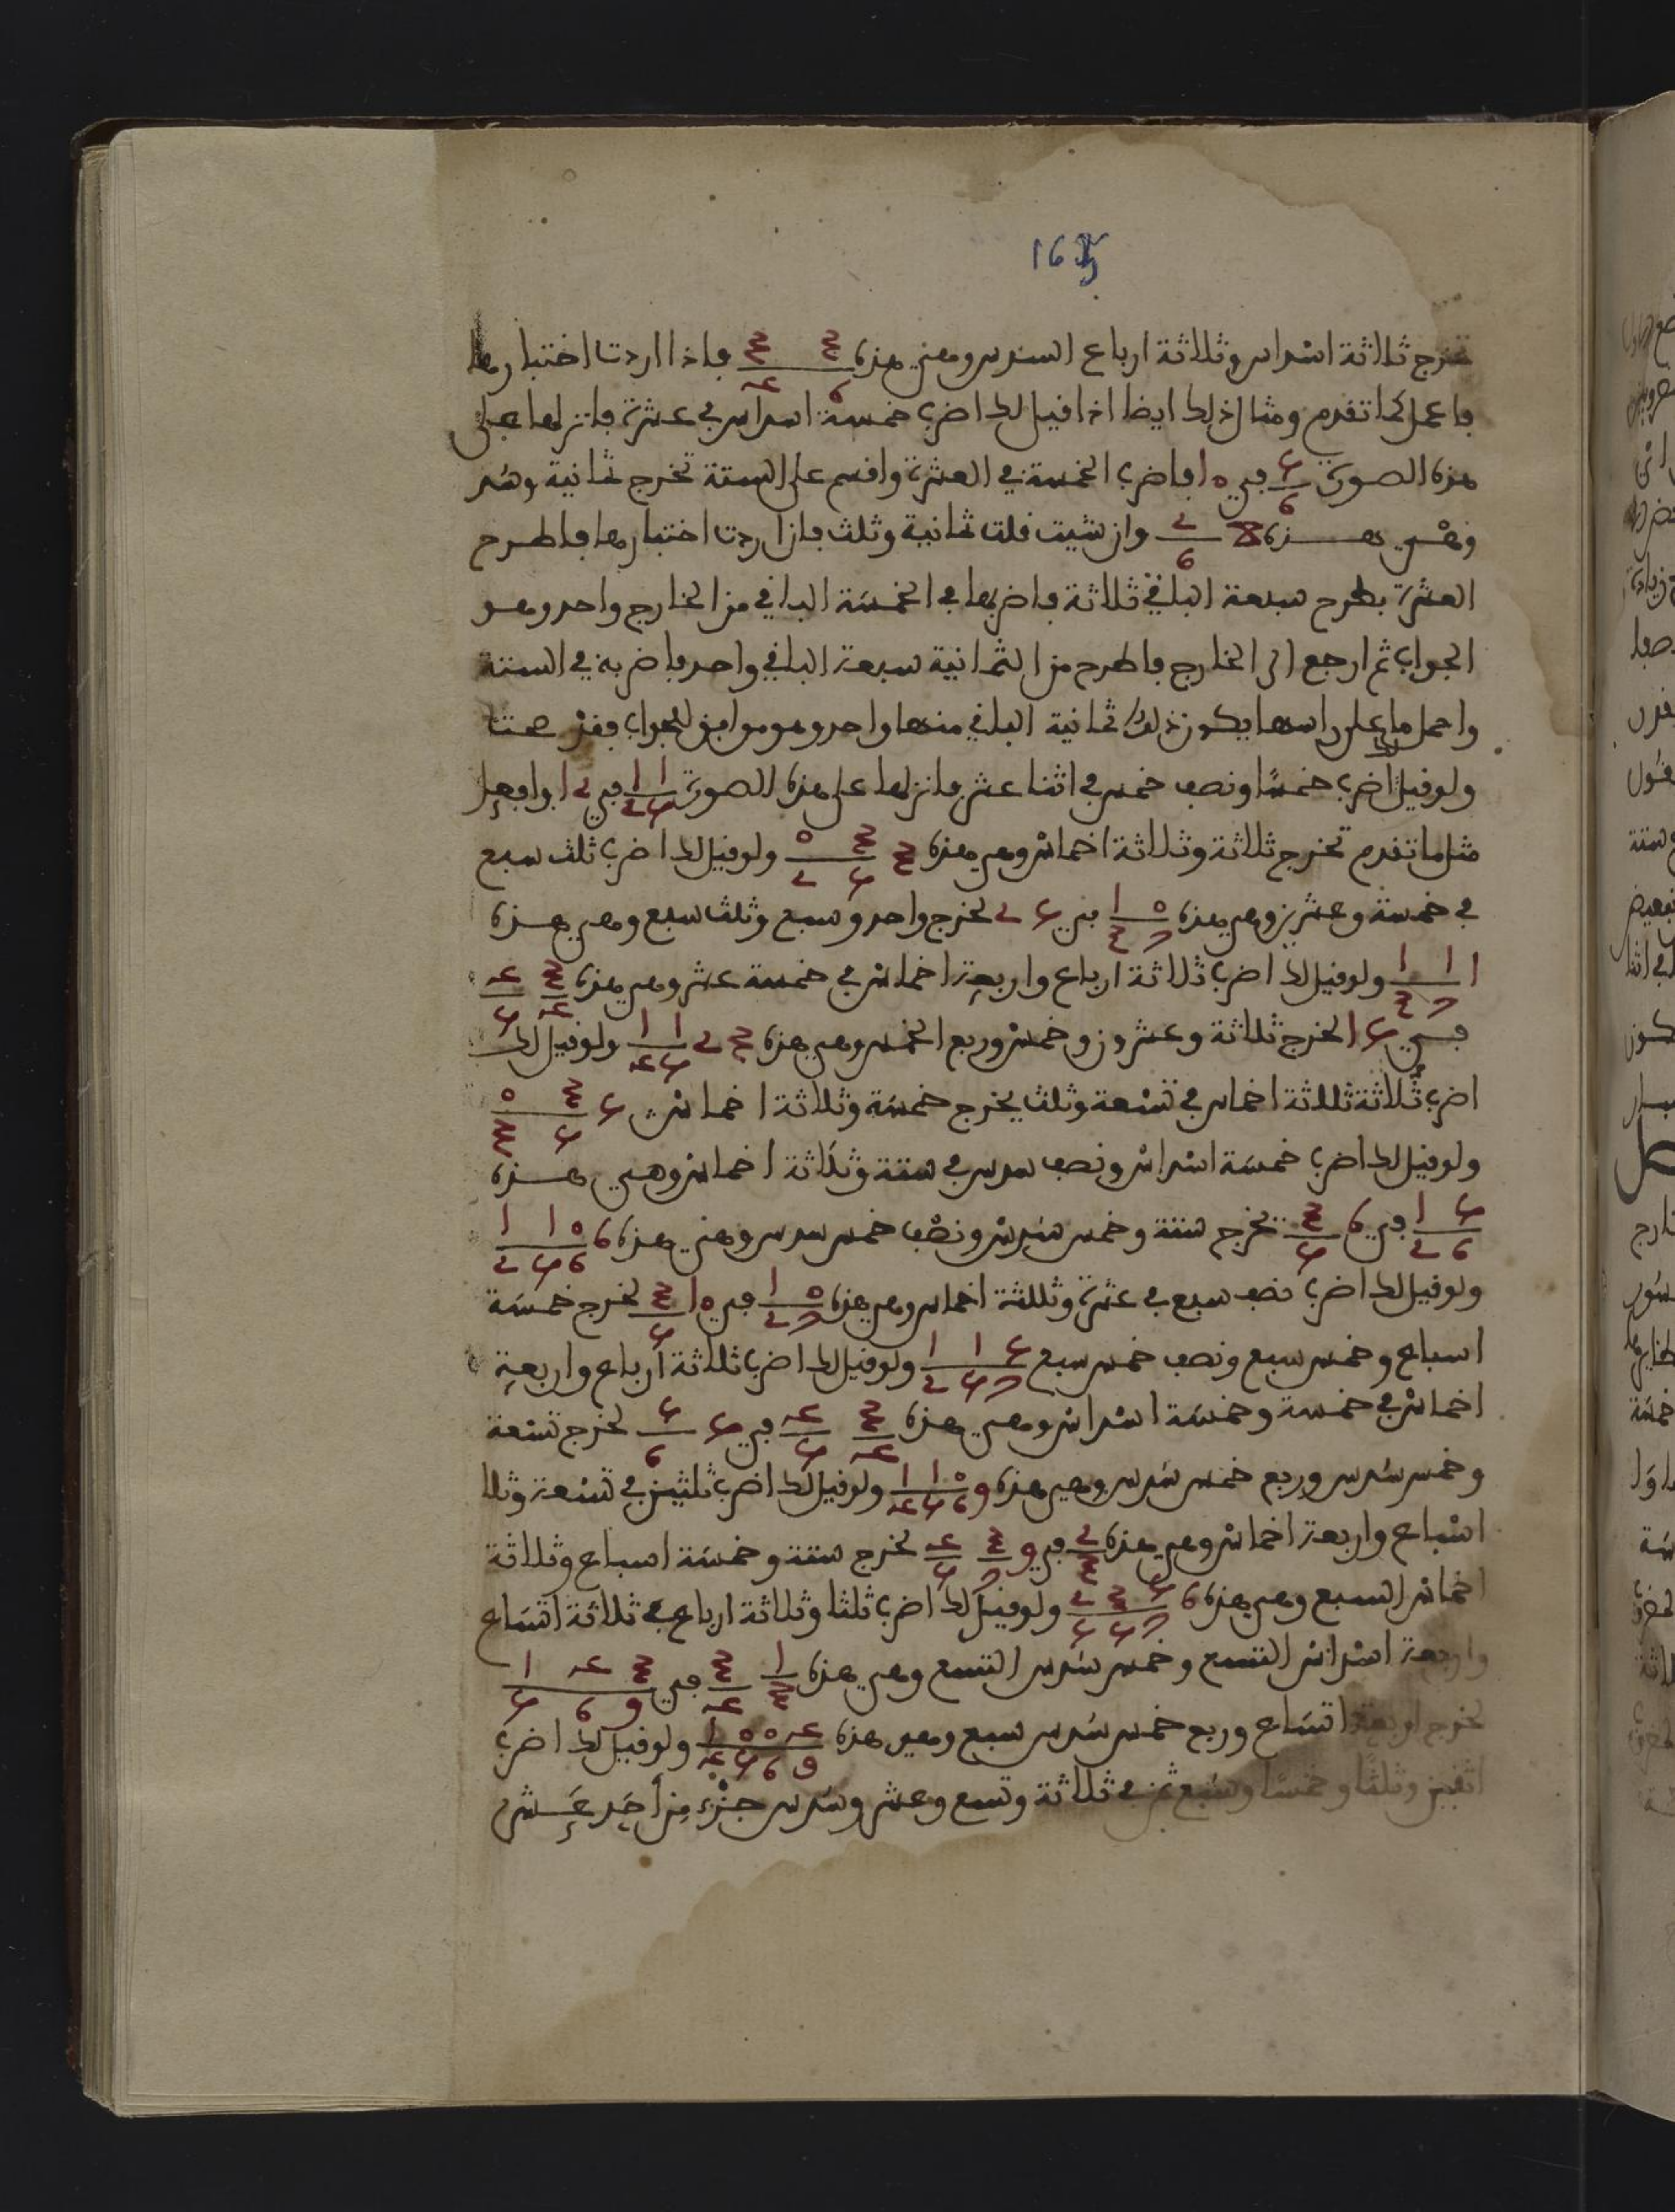 165
تخرج ثلاثة اسداس وثلاثة ارباع السدس وهي هذه فاذا اردت اختبارها
فاعمل كما تقدم ومثال ذلك ايضا اذا قيل لك اضرب خمسة اسداس في عشرة فانزلها على
هذه الصورة في ١٠ فاضرب الخمسة في العشرة واقسم على الستة تخرج ثمانية
وهي هذه وان شيت قلت ثمانية وثلث فان اردت اختبارها فاطرح
العشرة بطرح سبعة الباقي ثلاثة فاضربها في الخمسة الباقي من الخارج واحد وهو
الجواب ثم ارجع الى الخارج فاطرح من الثمانية سبعة الباقي واحد فاضربه في الستة
واحمل ما على راسها يكون ذلك ثمانية الباقي منها واحد وهو موافق للجواب فقد صحت
ولو قيل لك اضرب خمسًا ونصف خمس في اثنا عشر فانزلها على هذه الصورة في وافعل
مثل ما تقدم تخرج ثلاثة وثلاثة اخماس وهي هذه ولو قيل لك اضرب ثلث سبع
في خمسة وعشرين وهي هذه في تخرج واحد وسبع وثلث سبع وهي هذه
ولو قيل لك اضرب ثلاثة ارباع واربعة اخماس في خمسة عشر وهي هذه
في تخرج ثلاثة وعشرون وخمس وربع الخمس وهي هذه ولو قيل لك
اضرب ثلاثة اخماس في تسعة وثلث يخرج خمسة وثلاثة اخماس
ولو قيل لك اضرب خمسة اسداس ونصف سدس في ستة وثلاثة اخماس وهي هذه
في تخرج ستة وخمس سدس ونصف خمس سدس وهي هذه
ولو قيل لك اضرب نصف سبع في عشرة وثلثة اخماس وهي هذه في تخرج خمسة
اسباع وخمس سبع ونصف خمس سبع ولو قيل لك اضرب ثلاثة أرباع واربعة
اخماس في خمسة وخمسة اسداس وهي هذه في تخرج تسعة
وخمس سدس وربع خمس سدس وهي هذه ولو قيل لك اضرب ثلثين في تسعة وثلا
اسباع واربعة اخماس وهي هذه في تخرج ستة وخمسة اسباع وثلاثة
اخماس السبع وهي هذه ولو قيل لك اضرب ثلثا وثلاثة ارباع في ثلاثة اتساع
واربعة اسداس التسع وخمس سدس التسع وهي هذه في
تخرج اربعة اتساع وربع خمس سدس سبع وهي هذه ولو قيل لك اضرب
اثنين وثلثًا وخمسًا وسبع ثمن في ثلاثة وتسع وعشر وسدس جزء من أحد عشر